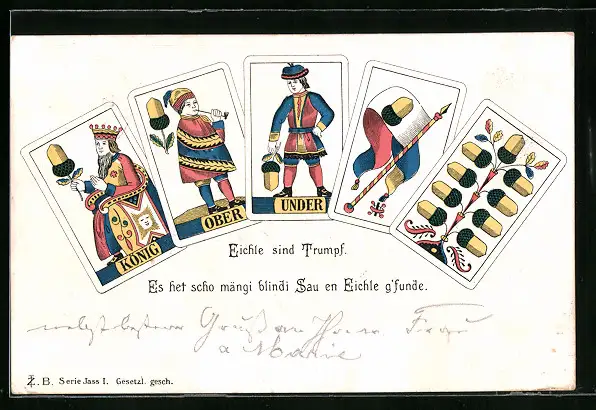 KÖNIG
OBER
UNDER
Eichle sind Trumpf.
Es het scho mängi blindi Sau en Eichle g'funde.
Gruß an Frau
a Marie
Z.B. Serie Jass I. Gesetzl. gesch.